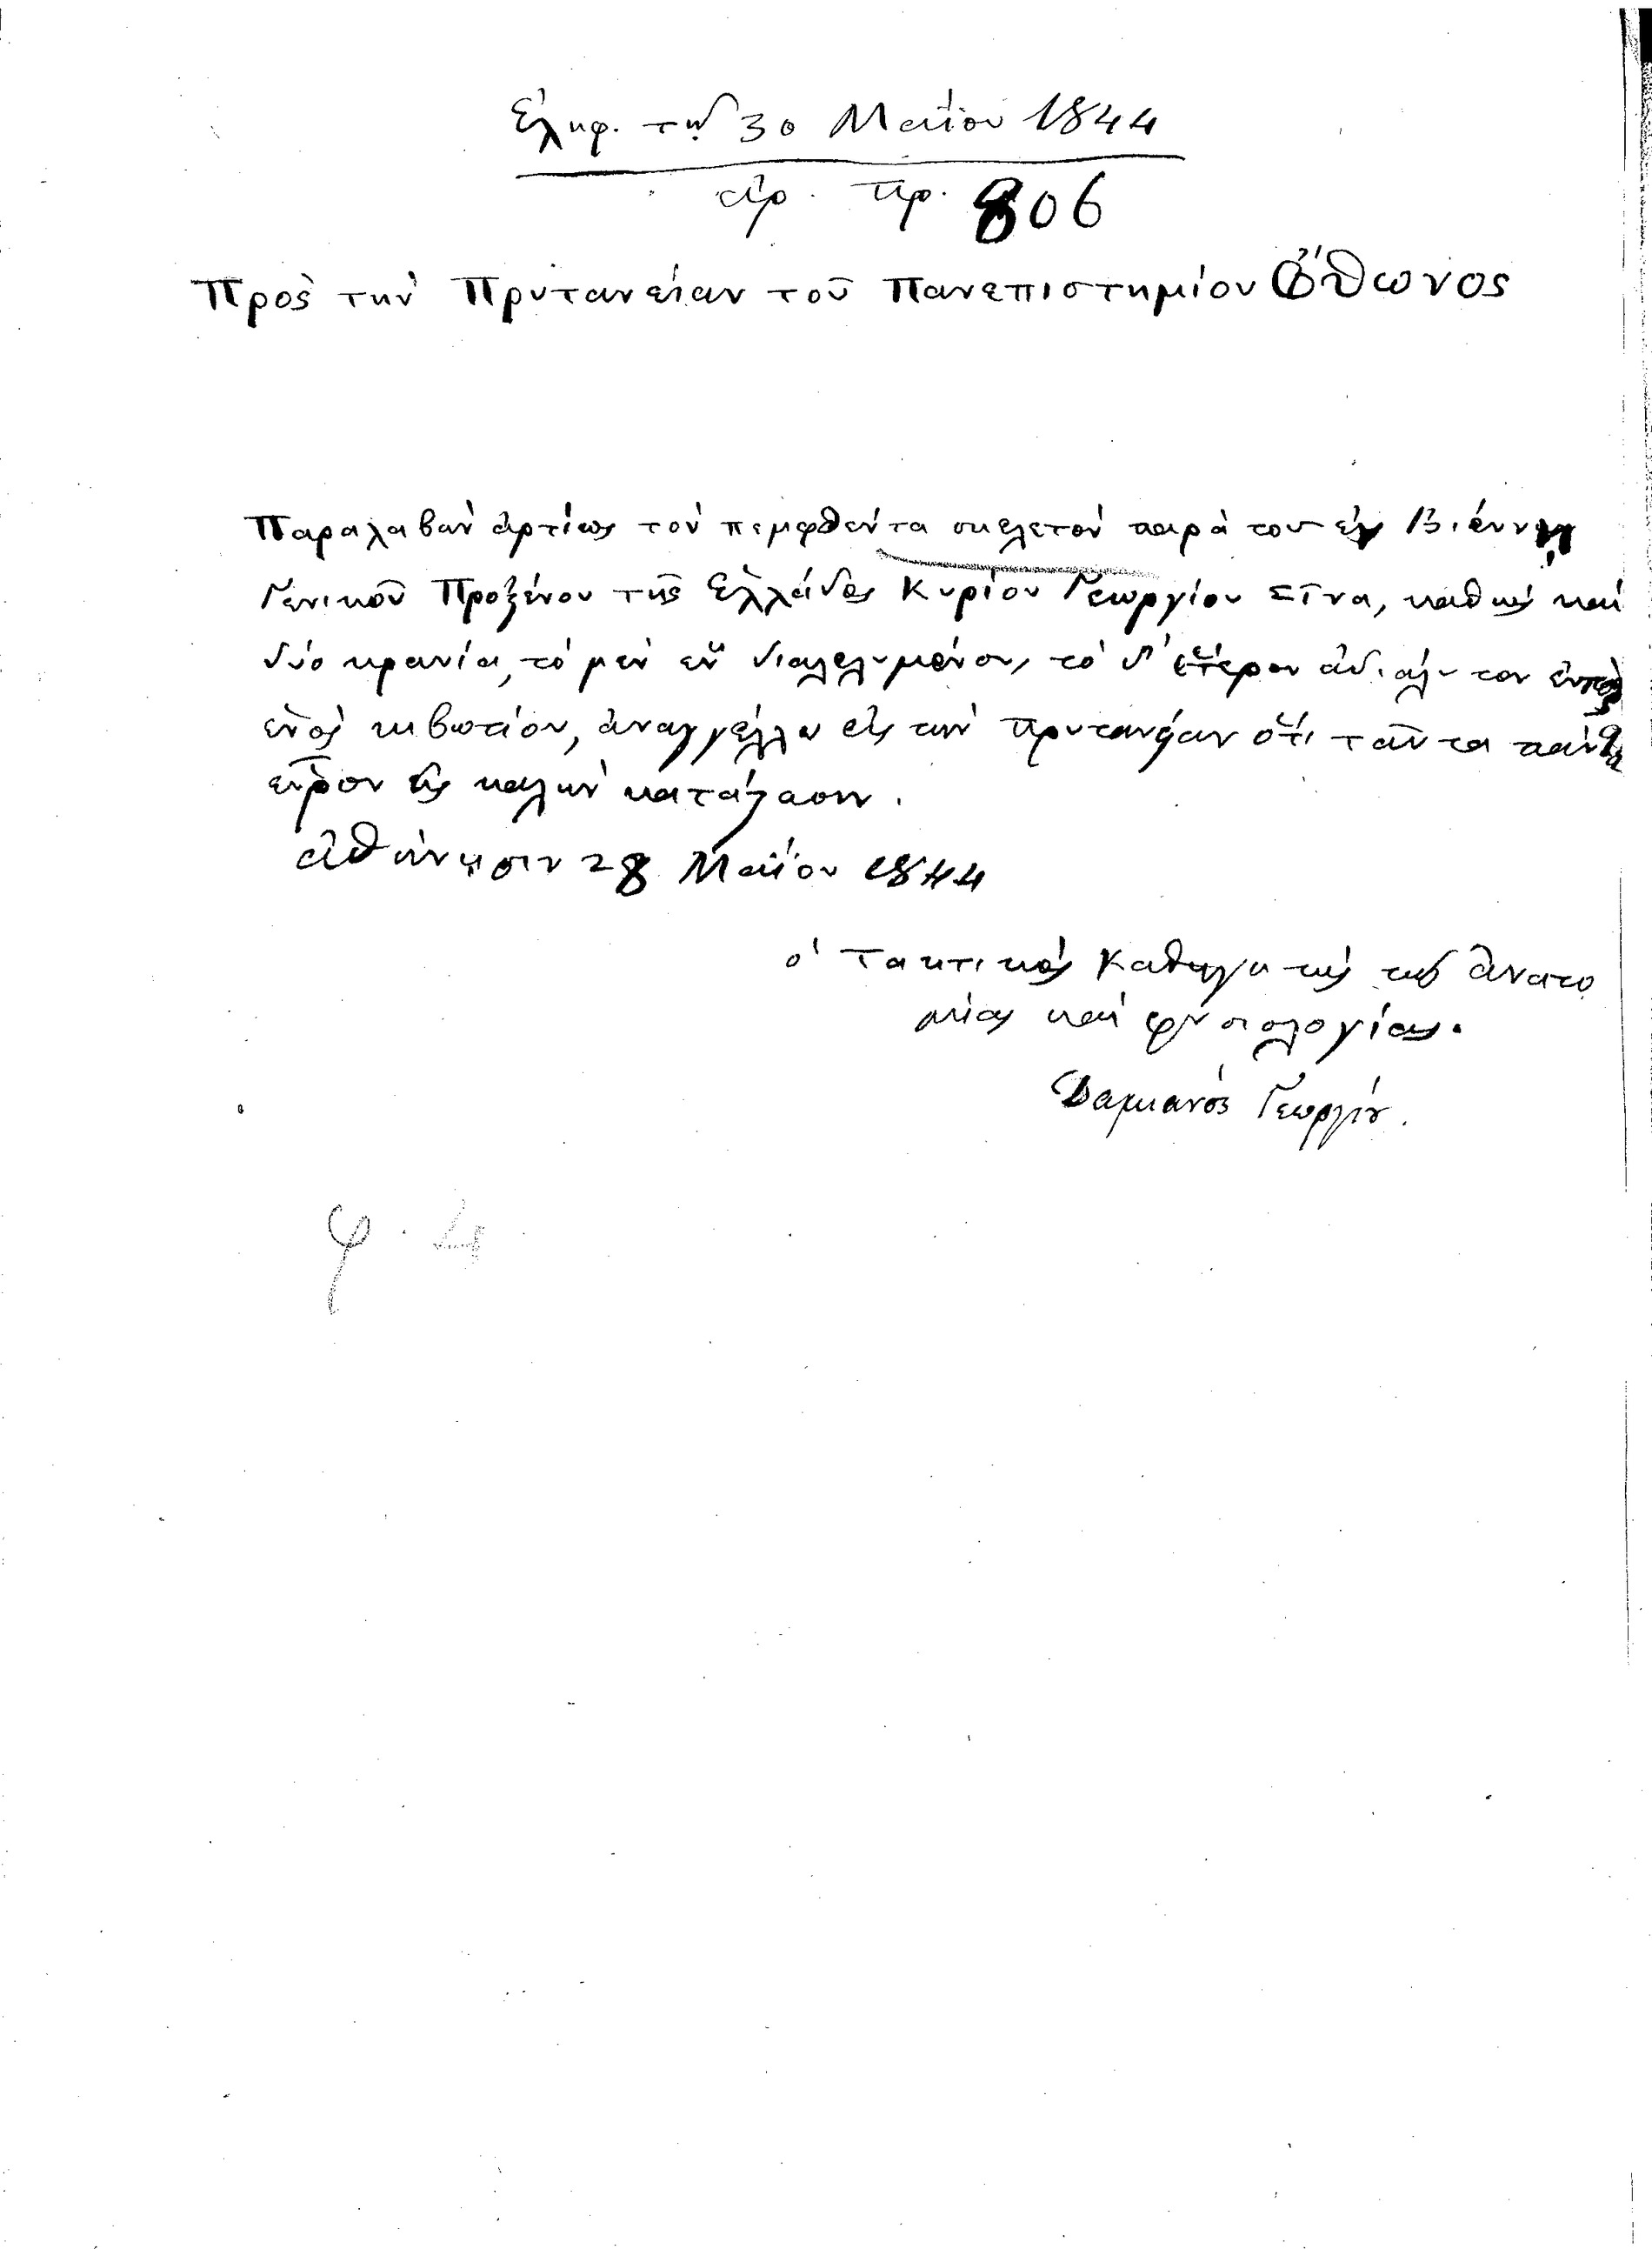 Ἐλήφ. τῇ 30 Μαΐου 1844
ἀρ. πρ. 806
Πρὸς τὴν Πρυτανείαν τοῦ Πανεπιστημίου Ὄθωνος
Παραλαβὼν ἀρτίως τὸν πεμφθέντα σκελετὸν παρὰ τοῦ ἐν Βιέννῃ
Γενικοῦ Προξένου τῆς Ἑλλάδος Κυρίου Γεωργίου Σῖνα, καθὼς καὶ
δύο κρανία, τὸ μὲν ἓν διαλελυμένον, τὸ δ' ἕτερον ἀδιάλυτον ἐντὸς
ἑνὸς κιβωτίου, ἀναγγέλλω εἰς τὴν Πρυτανείαν ὅτι ταῦτα πάντα
εὗρον εἰς καλὴν κατάστασιν.
Ἀθήνησιν 28 Μαΐου 1844
ὁ Τακτικὸς Καθηγητὴς τῆς Ἀνατο
μίας καὶ φυσιολογίας.
Δαμιανὸς Γεωργίου.
φ. 4